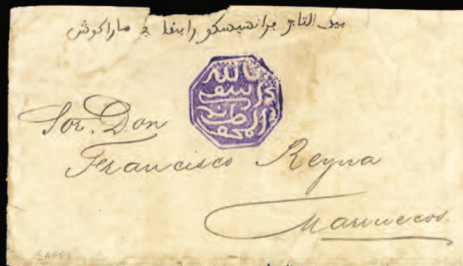 بيد التاجر فرانسيسكو راينا في ماراكوش
الله
Sor. Don
Francisco Reyna
Marruecos